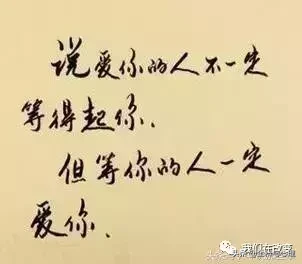 说爱你的人不一定
等得起你、
但等你的人一定
爱你、
我们在改变